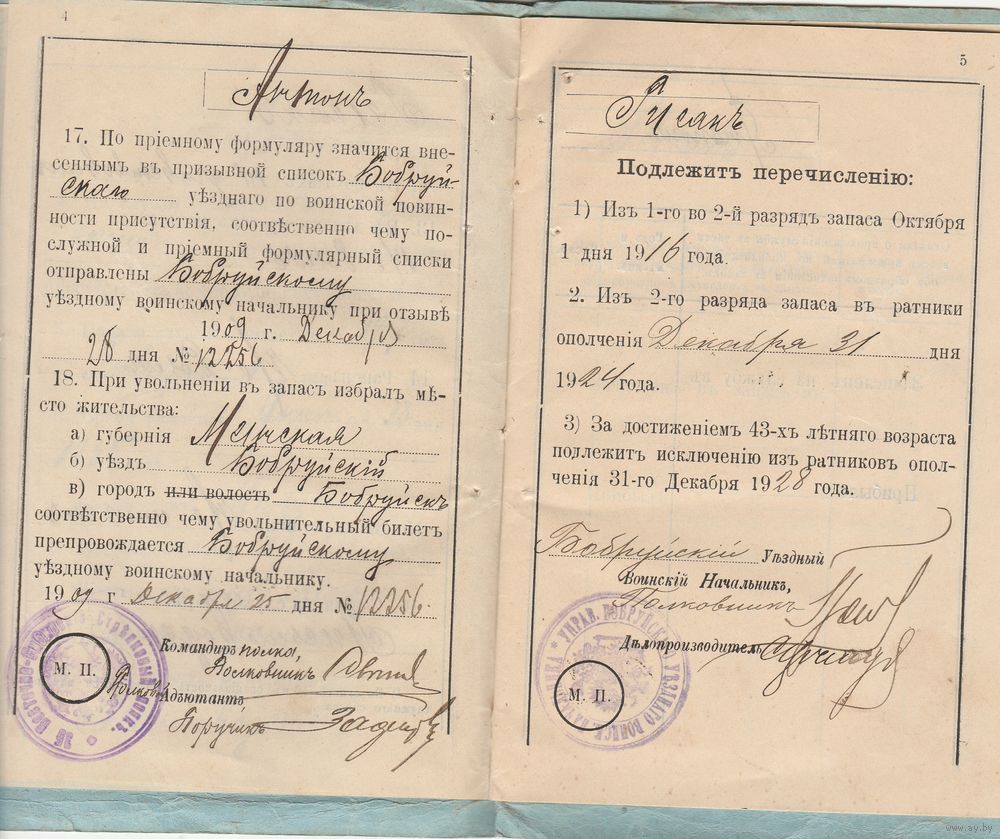 4
Антонъ
17. По пріемному формуляру значится вне-
сеннымъ въ призывной списокъ Бобруй-
скаго уѣзднаго по воинской повин-
ности присутствія, соотвѣтственно чему по-
служной и пріемный формулярный списки
отправлены Бобруйскому
уѣздному воинскому начальнику при отзывѣ
1909 г. Декабря
28 дня № 12256
18. При увольненіи въ запасъ избралъ мѣ-
сто жительства:
а) губернія Минская
б) уѣздъ Бобруйскій
в) городъ или волость Бобруйскъ
соотвѣтственно чему увольнительный билетъ
препровождается Бобруйскому
уѣздному воинскому начальнику.
1909 г Декабря 25 дня № 12256.
Командиръ полка,
Полковникъ
М. П.
Адъютантъ
Поручикъ
5
Рисакъ
Подлежитъ перечисленію:
1) Изъ 1-го во 2-й разрядъ запаса Октября
1 дня 1916 года.
2. Изъ 2-го разряда запаса въ ратники
ополченія Декабря 31 дня
1924 года.
3) За достиженіемъ 43-хъ лѣтняго возраста
подлежитъ исключенію изъ ратниковъ опол-
ченія 31-го Декабря 1928 года.
Бобруйскій Уѣздный
Воинскій Начальникъ,
Полковникъ
Дѣлопроизводитель
М. П.
УПРАВ. БОБРУЙСК. УѢЗДНАГО ВОИНСК. НАЧАЛЬНИКА
www.ay.by